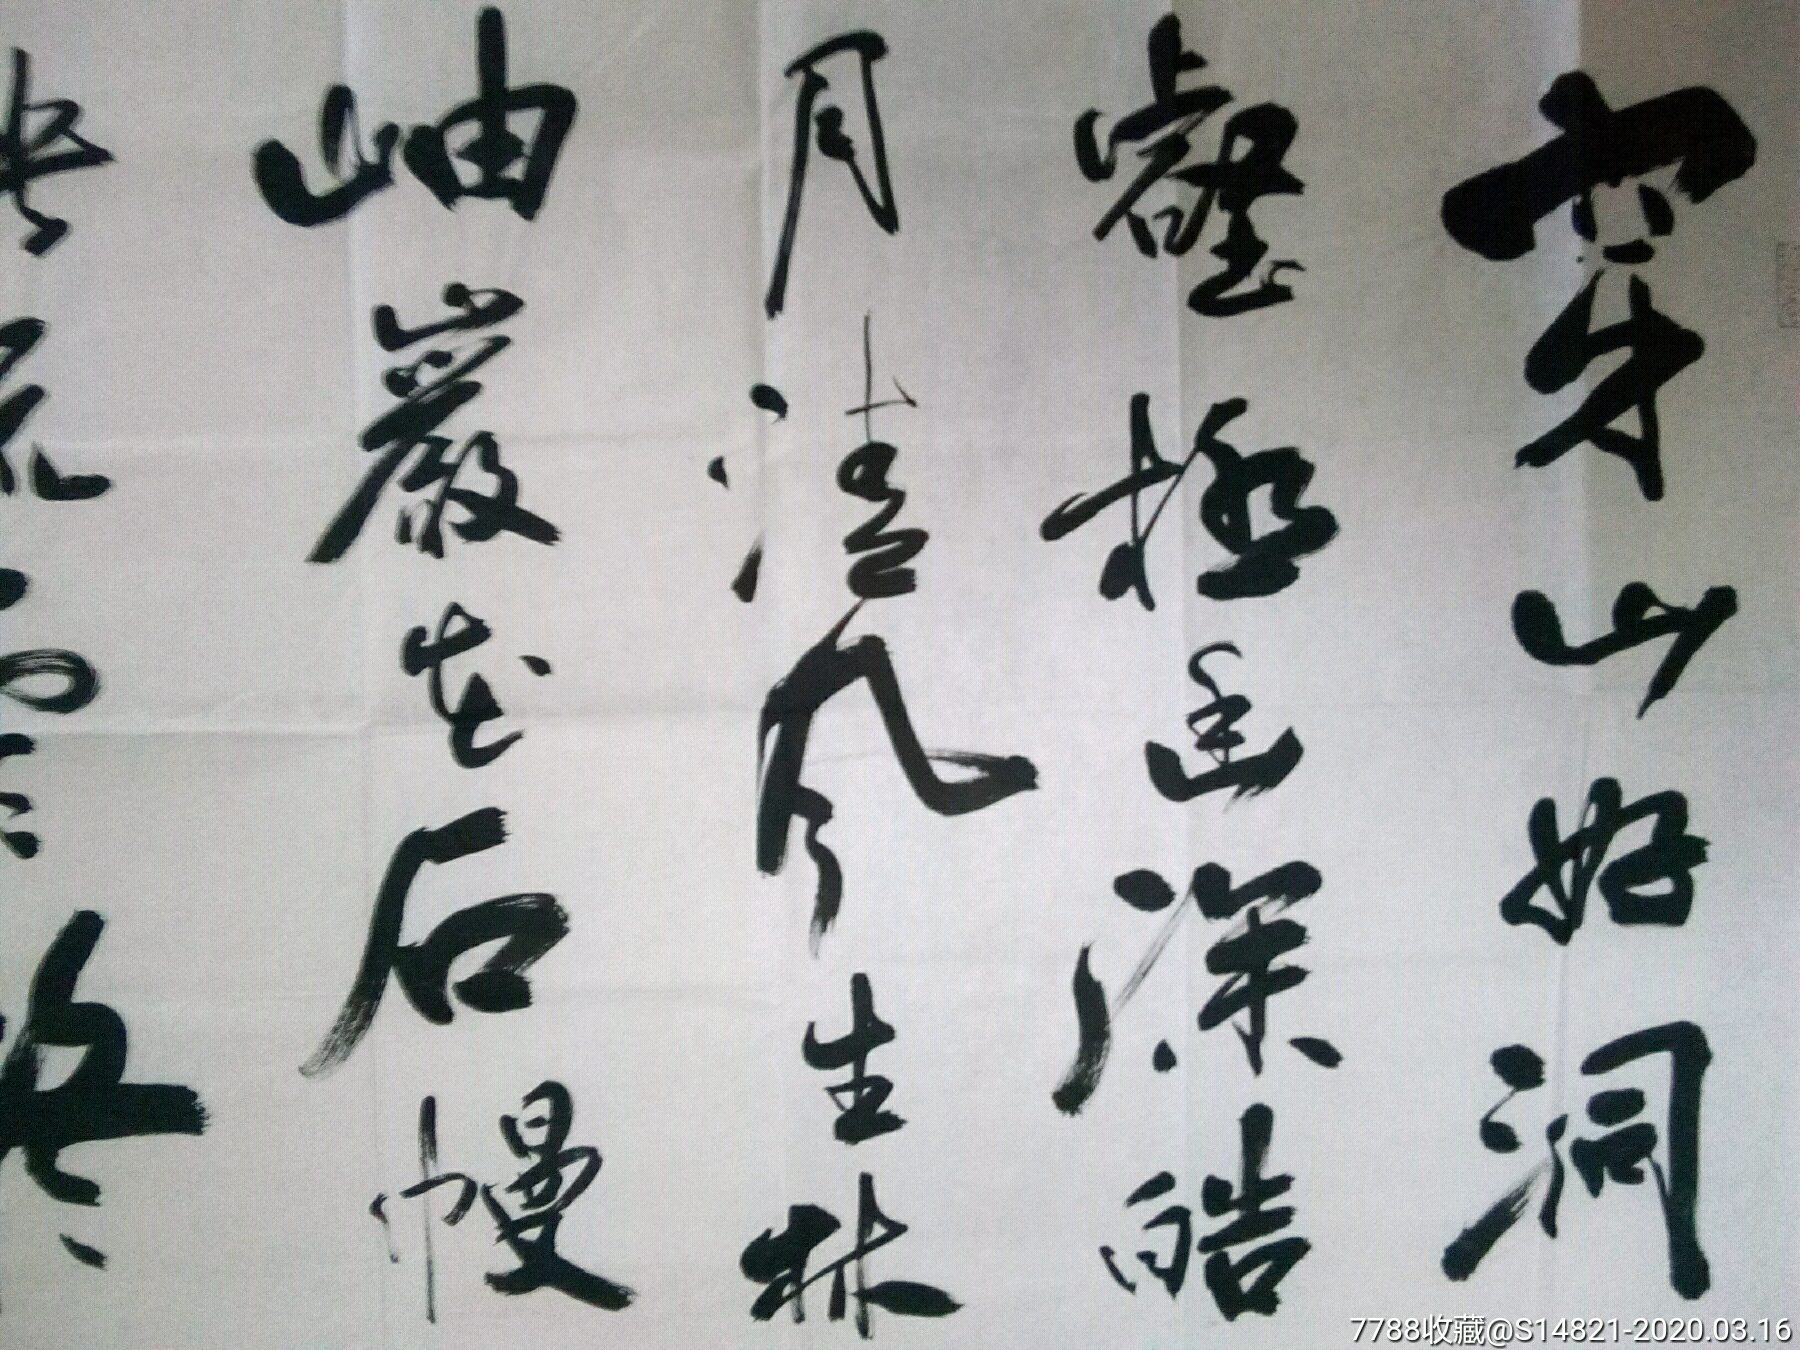 穿山好洞
壑極幽深皓
月清风生林
岫巖花石幔
7788收藏@S14821-2020.03.16